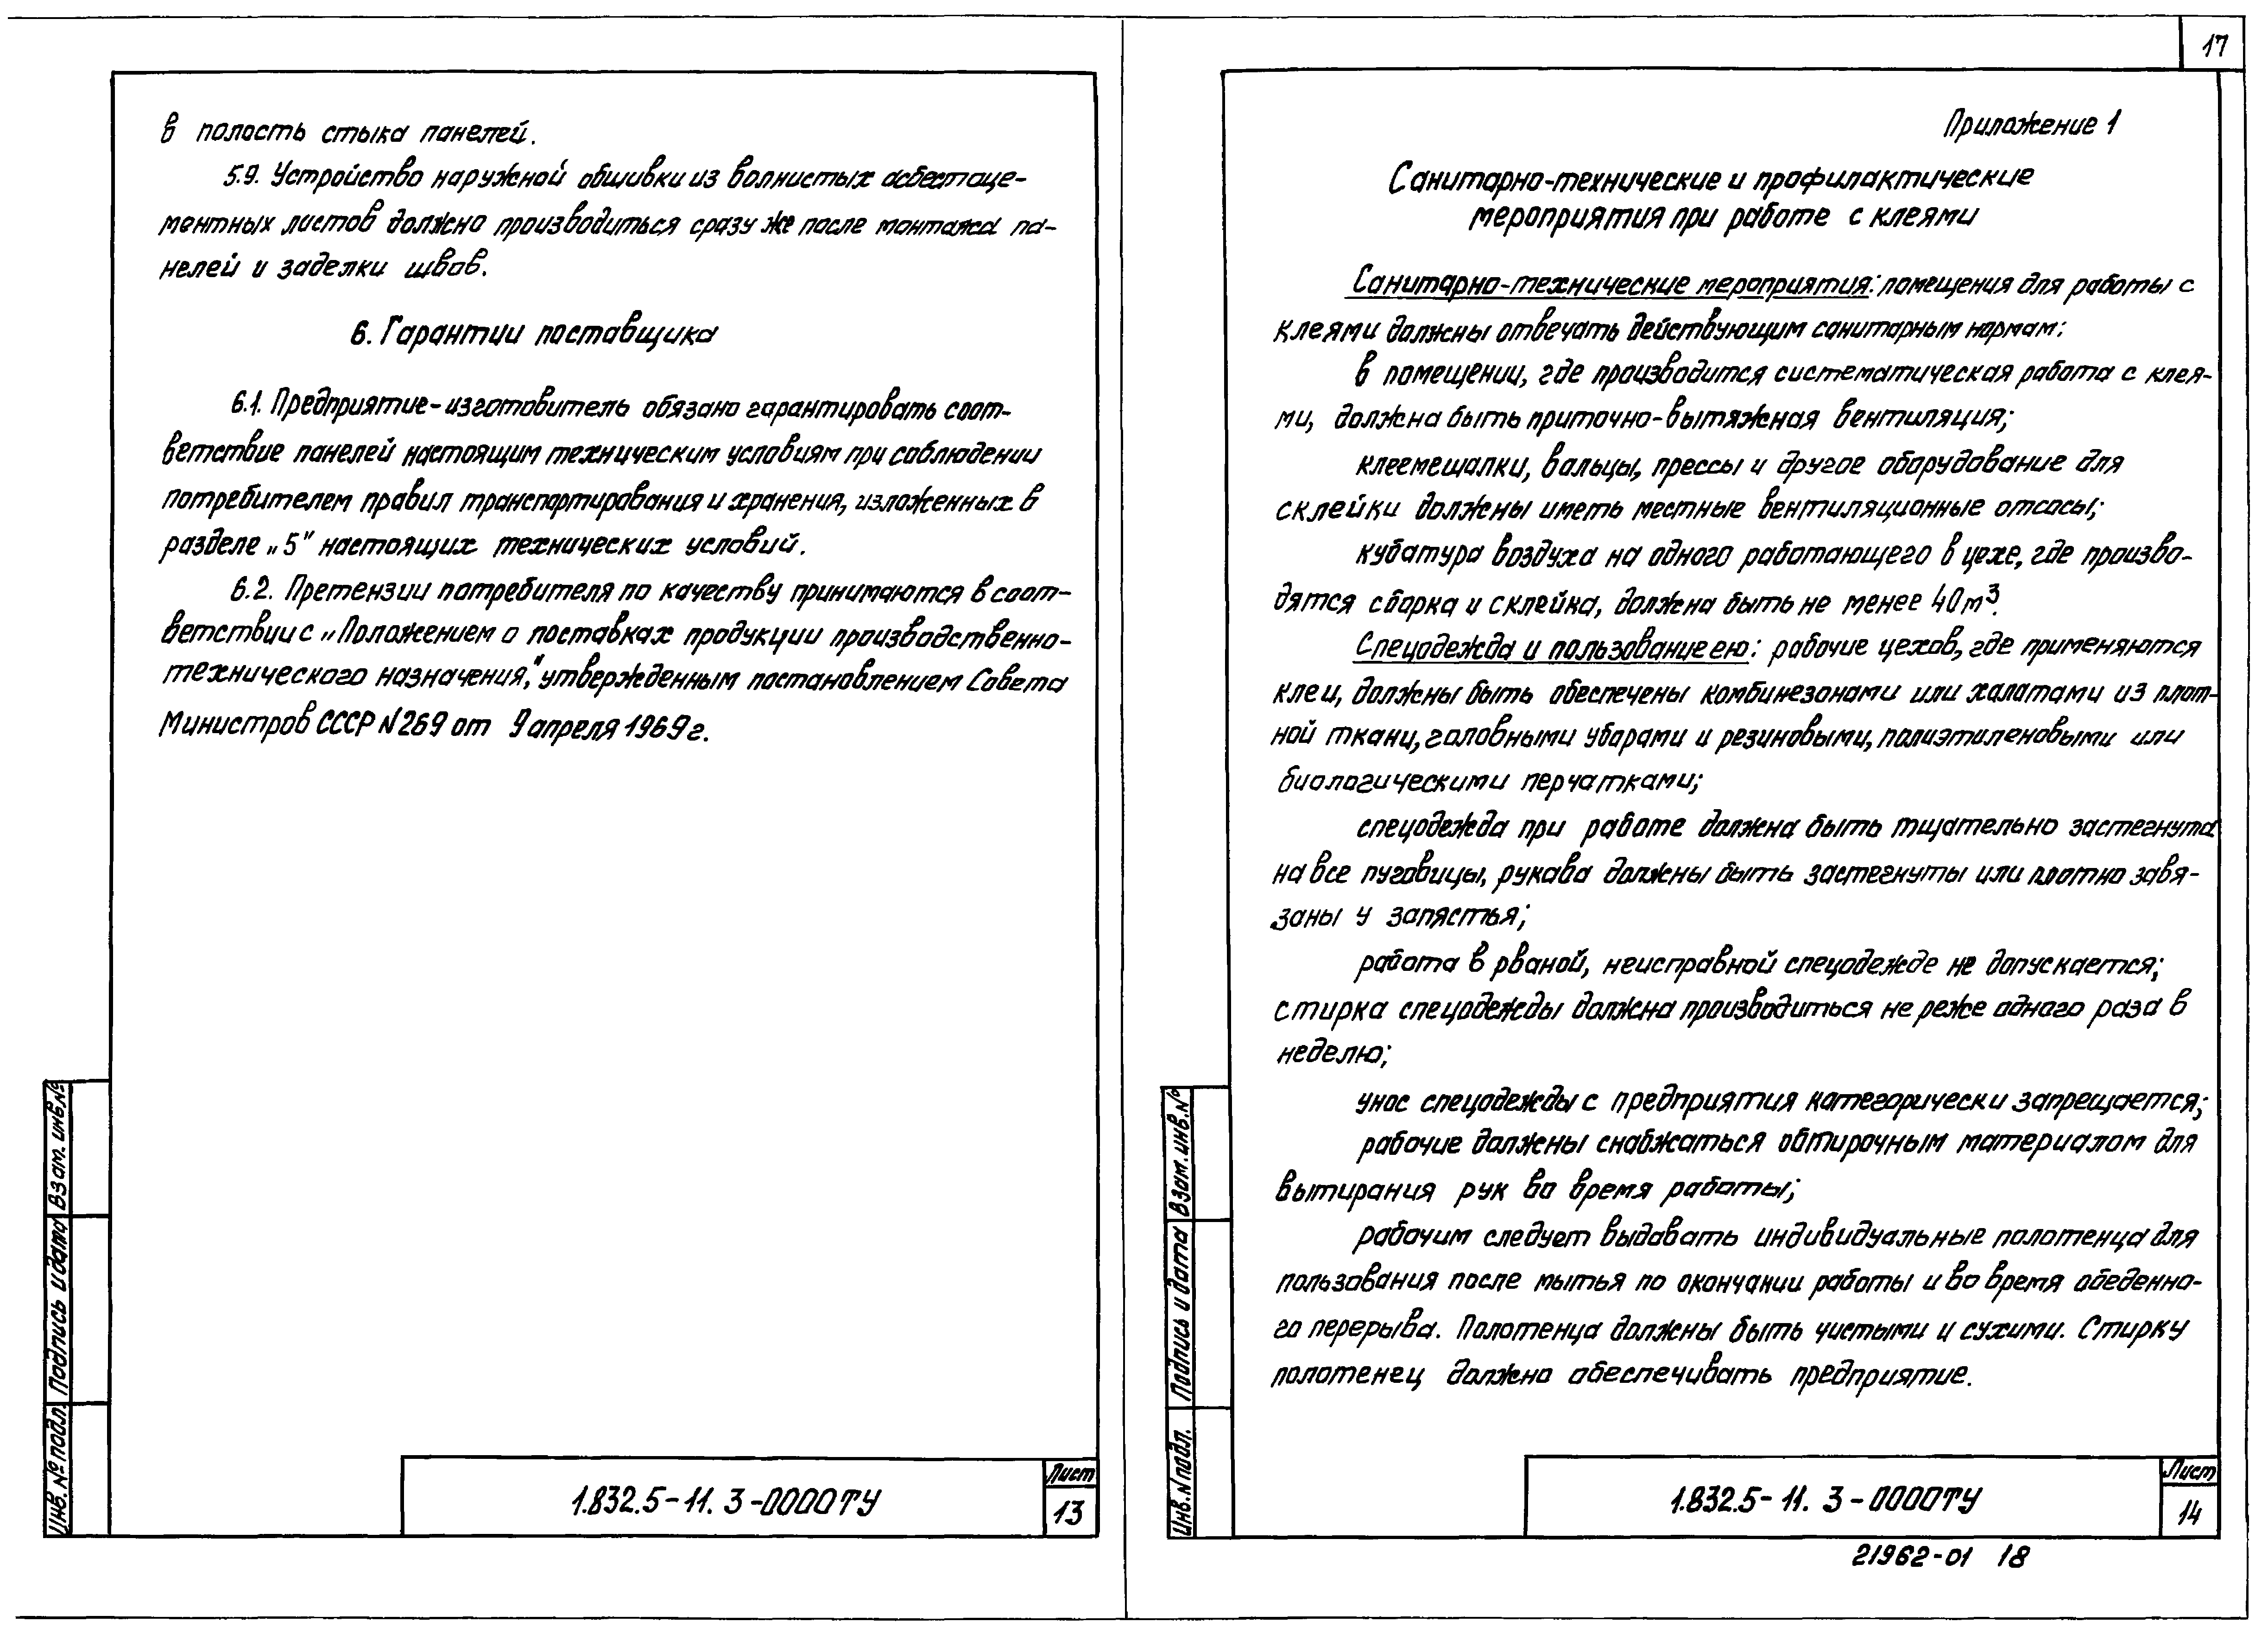 в полость стыка панелей.
5.9. Устройство наружной обшивки из волнистых асбестоце-
ментных листов должно производиться сразу же после монтажа па-
нелей и заделки швов.
6. Гарантии поставщика
6.1. Предприятие-изготовитель обязано гарантировать соот-
ветствие панелей настоящим техническим условиям при соблюдении
потребителем правил транспортирования и хранения, изложенных в
разделе „5" настоящих технических условий.
6.2. Претензии потребителя по качеству принимаются в соот-
ветствии с „Положением о поставках продукции производственно-
технического назначения," утвержденным постановлением Совета
Министров СССР N 269 от 9 апреля 1969 г.
Взам. инв. №
Подпись и дата
Инв. № подл.
1.832.5-11. 3-0000ТУ
Лист
13
17
Приложение 1
Санитарно-технические и профилактические
мероприятия при работе с клеями
Санитарно-технические мероприятия: помещения для работы с
клеями должны отвечать действующим санитарным нормам:
в помещении, где производится систематическая работа с клея-
ми, должна быть приточно-вытяжная вентиляция;
клеемешалки, вальцы, прессы и другое оборудование для
склейки должны иметь местные вентиляционные отсосы;
кубатура воздуха на одного работающего в цехе, где произво-
дятся сборка и склейка, должна быть не менее 40 м³.
Спецодежда и пользование ею: рабочие цехов, где применяются
клеи, должны быть обеспечены комбинезонами или халатами из плот-
ной ткани, головными уборами и резиновыми, полиэтиленовыми или
биологическими перчатками;
спецодежда при работе должна быть тщательно застегнута
на все пуговицы, рукава должны быть застегнуты или плотно завя-
заны у запястья;
работа в рваной, неисправной спецодежде не допускается;
стирка спецодежды должна производиться не реже одного раза в
неделю;
унос спецодежды с предприятия категорически запрещается;
рабочие должны снабжаться обтирочным материалом для
вытирания рук во время работы;
рабочим следует выдавать индивидуальные полотенца для
пользования после мытья по окончании работы и во время обеденно-
го перерыва. Полотенца должны быть чистыми и сухими. Стирку
полотенец должно обеспечивать предприятие.
Взам. инв. №
Подпись и дата
Инв. N подл.
1.832.5-11. 3-0000ТУ
Лист
14
21962-01 18